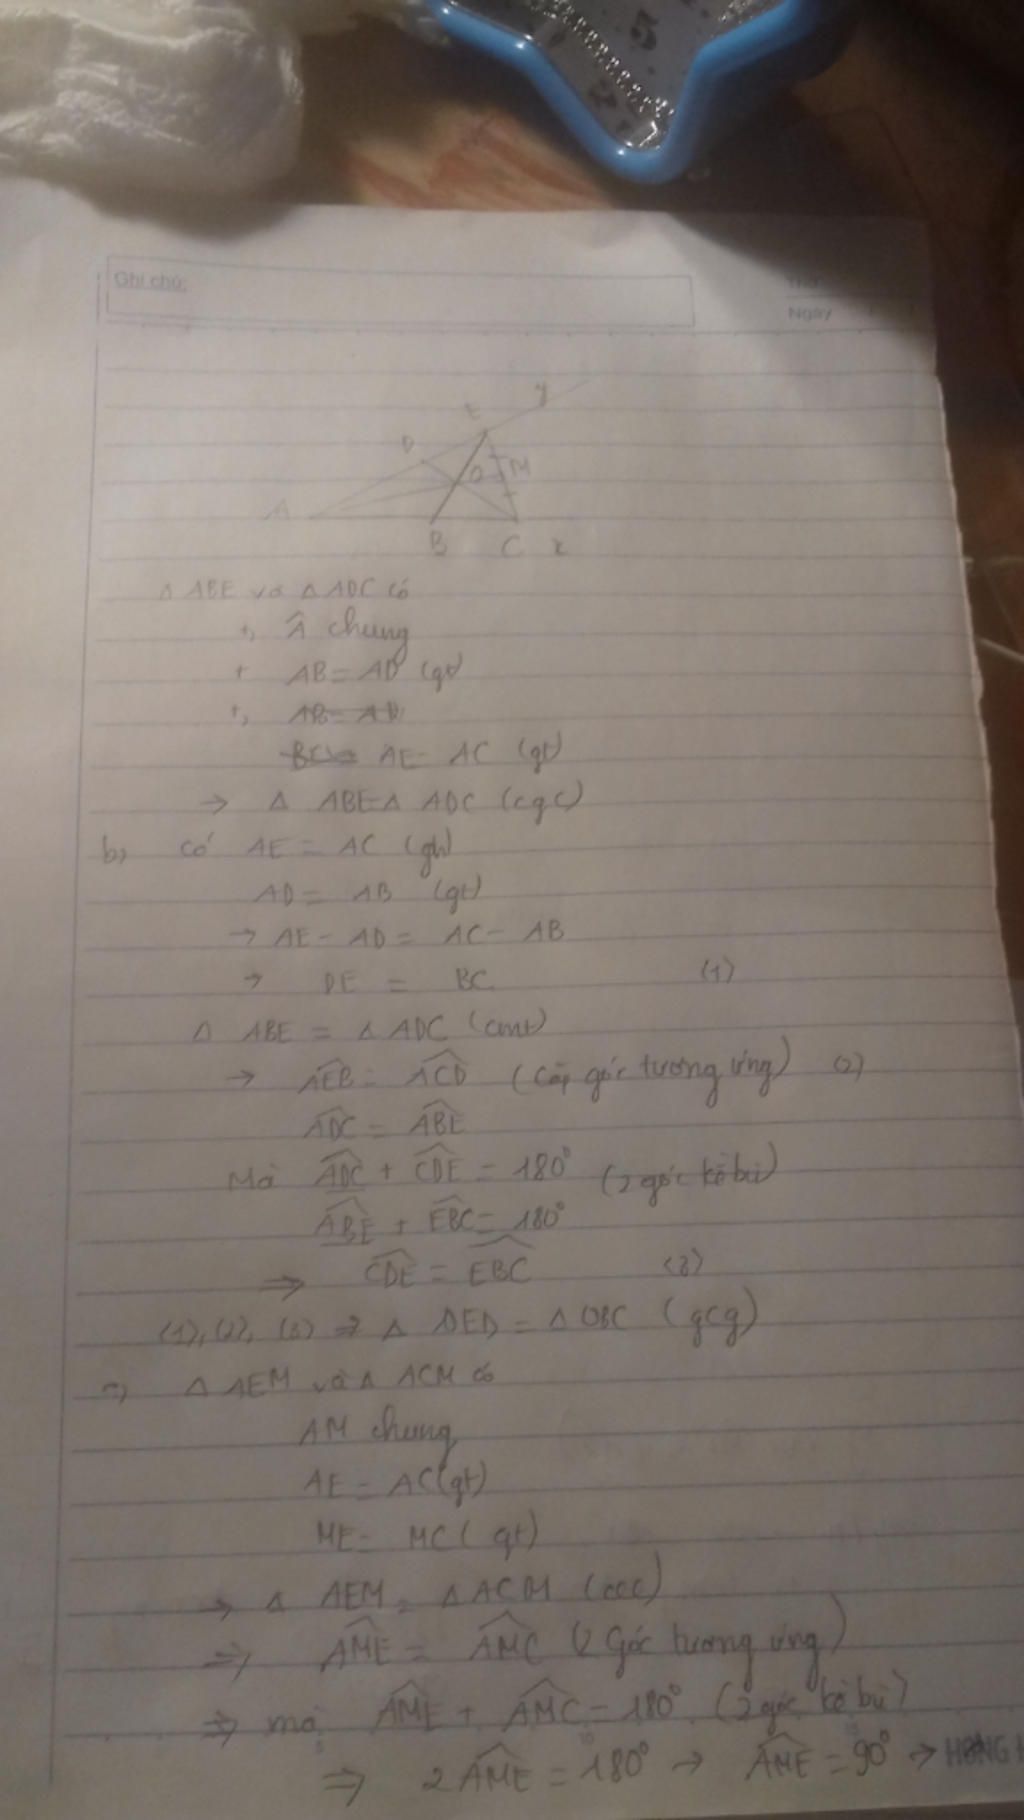 Ghi chú:
Thứ
Ngày
E y
D
O M
A
B C x
Δ ABE và Δ ADC có
+, Â chung
+ AB = AD (gt)
+, AB = AD
BC = AE = AC (gt)
→ Δ ABE = Δ ADC (cgc)
b, có AE = AC (gt)
AD = AB (gt)
→ AE - AD = AC - AB
→ DE = BC (1)
Δ ABE = Δ ADC (cmt)
→ \widehat{AEB} = \widehat{ACD} (cặp góc tương ứng) (2)
\widehat{ADC} = \widehat{ABE}
Mà \widehat{ADC} + \widehat{CDE} = 180° (2 góc kề bù)
\widehat{ABE} + \widehat{EBC} = 180°
⇒ \widehat{CDE} = \widehat{EBC} (3)
(1), (2), (3) ⇒ Δ OED = Δ OBC (gcg)
c, Δ AEM và Δ ACM có
AM chung
AE = AC (gt)
ME = MC (gt)
→ Δ AEM = Δ ACM (ccc)
⇒ \widehat{AME} = \widehat{AMC} (2 Góc tương ứng)
⇒ mà \widehat{AME} + \widehat{AMC} = 180° (2 góc kề bù)
5 10 15
⇒ 2\widehat{AME} = 180° → \widehat{AME} = 90° →